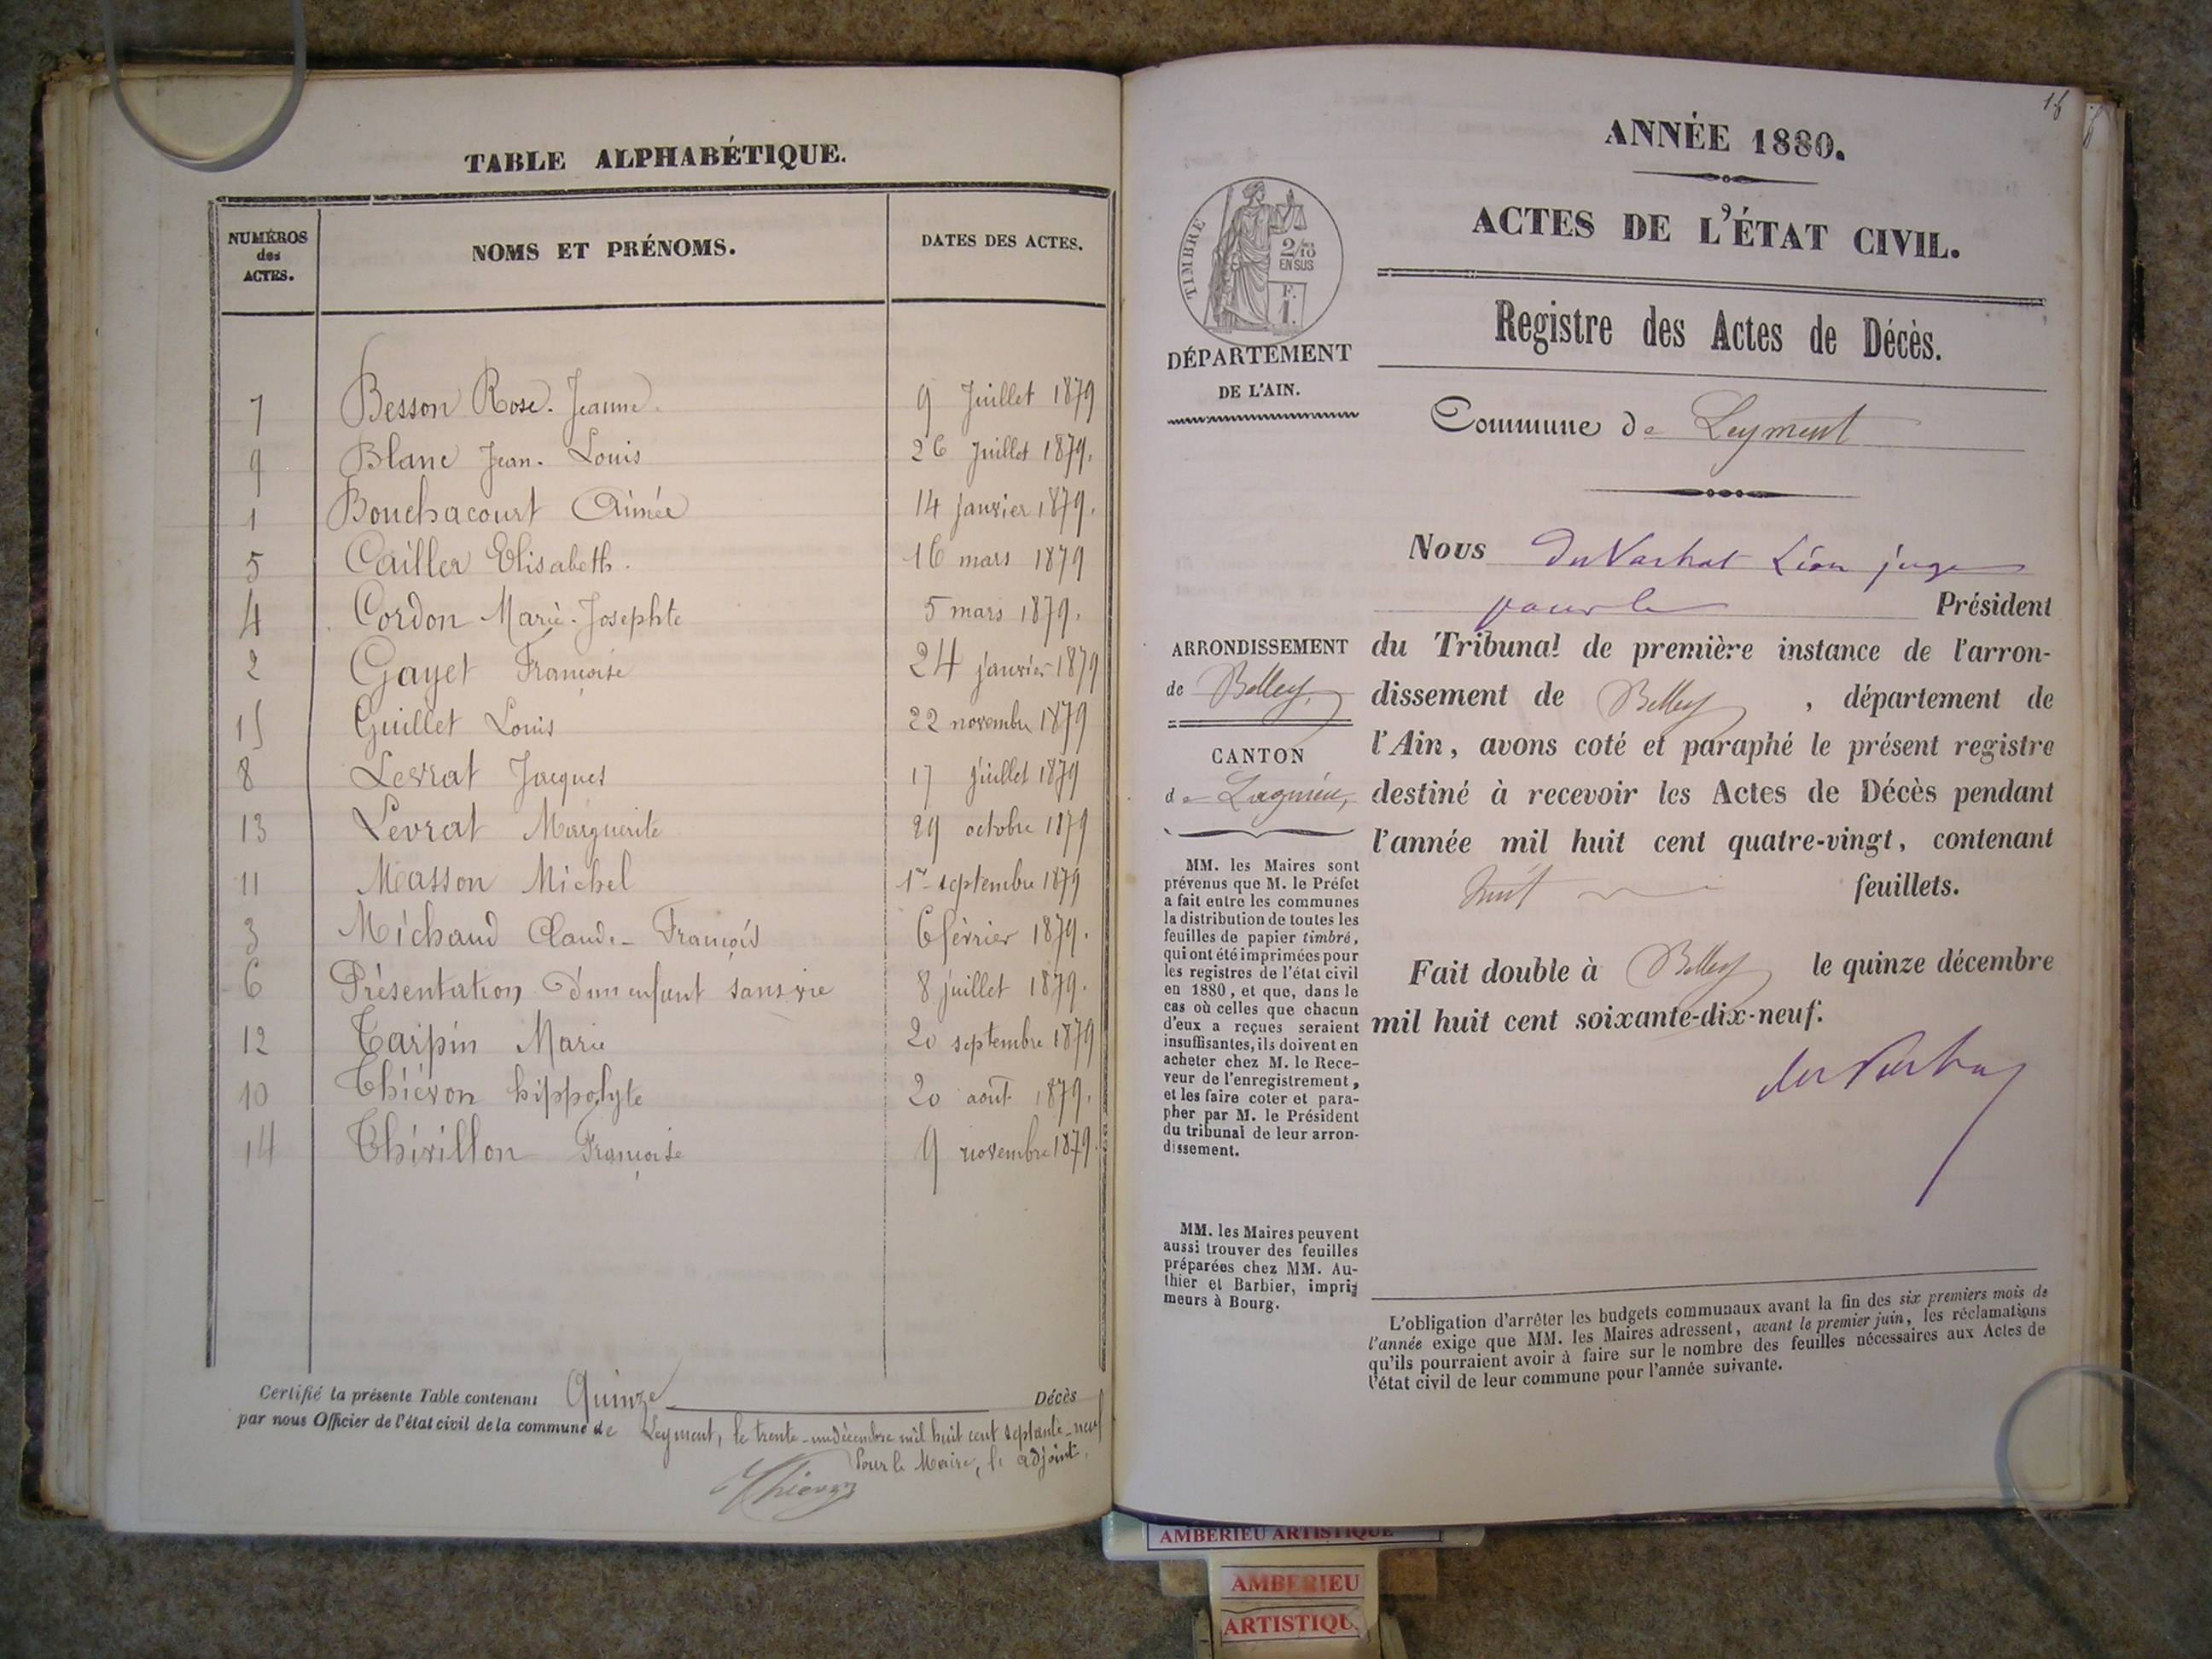 TABLE ALPHABÉTIQUE.
NUMÉROS des ACTES. NOMS ET PRÉNOMS. DATES DES ACTES.
7 Besson Rose. Jeanne. 9 Juillet 1879
9 Blanc Jean. Louis 26 Juillet 1879.
1 Bouchacourt Aimée 14 janvier 1879.
5 Cailler Elisabeth. 16 mars 1879
4 Cordon Marie. Josephte 5 mars 1879.
2 Gayet Françoise 24 janvier 1879
15 Guillet Louis 22 novembre 1879
8 Levrat Jacques 17 juillet 1879
13 Levrat Marguerite 29 octobre 1879
11 Masson Michel 1er septembre 1879
3 Michaud Claude-François 6 février 1879.
6 Présentation d'un enfant sans vie 8 juillet 1879.
12 Tarpin Marie 20 septembre 1879
10 Thiévon hippolyte 20 août 1879.
14 Thivillon Françoise 9 novembre 1879.
Certifié la présente Table contenant Quinze Décès
par nous Officier de l'état civil de la commune de Leyment, le trente-un décembre mil huit cent septante-neuf
Pour le Maire, l'adjoint.
ANNÉE 1880.
ACTES DE L'ÉTAT CIVIL.
Registre des Actes de Décès.
TIMBRE
2/10
EN SUS
F.
1.
DÉPARTEMENT
DE L'AIN.
Commune de Leyment
Nous du Vachat Léon juge
pour le Président
du Tribunal de première instance de l'arron-
dissement de Belley, département de
l'Ain, avons coté et paraphé le présent registre
destiné à recevoir les Actes de Décès pendant
l'année mil huit cent quatre-vingt, contenant
huit feuillets.
Fait double à Belley le quinze décembre
mil huit cent soixante-dix-neuf.
du Vachat
ARRONDISSEMENT
de Belley,
CANTON
de Lagnieu,
MM. les Maires sont
prévenus que M. le Préfet
a fait entre les communes
la distribution de toutes les
feuilles de papier timbré,
qui ont été imprimées pour
les registres de l'état civil
en 1880, et que, dans le
cas où celles que chacun
d'eux a reçues seraient
insuffisantes, ils doivent en
acheter chez M. le Rece-
veur de l'enregistrement,
et les faire coter et para-
pher par M. le Président
du tribunal de leur arron-
dissement.
MM. les Maires peuvent
aussi trouver des feuilles
préparées chez MM. Au-
thier et Barbier, impri-
meurs à Bourg.
L'obligation d'arrêter les budgets communaux avant la fin des six premiers mois de
l'année exige que MM. les Maires adressent, avant le premier juin, les réclamations
qu'ils pourraient avoir à faire sur le nombre des feuilles nécessaires aux Actes de
l'état civil de leur commune pour l'année suivante.
AMBERIEU ARTISTIQUE
AMBERIEU
ARTISTIQU